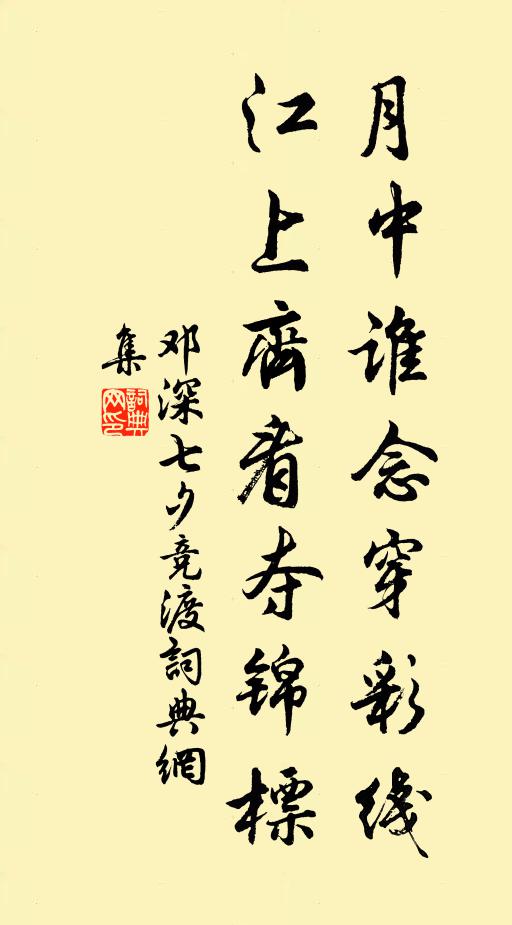 月中谁念穿彩线
江上齊看夺锦標
邓深七夕竞渡詞典網
集
詞典
网印